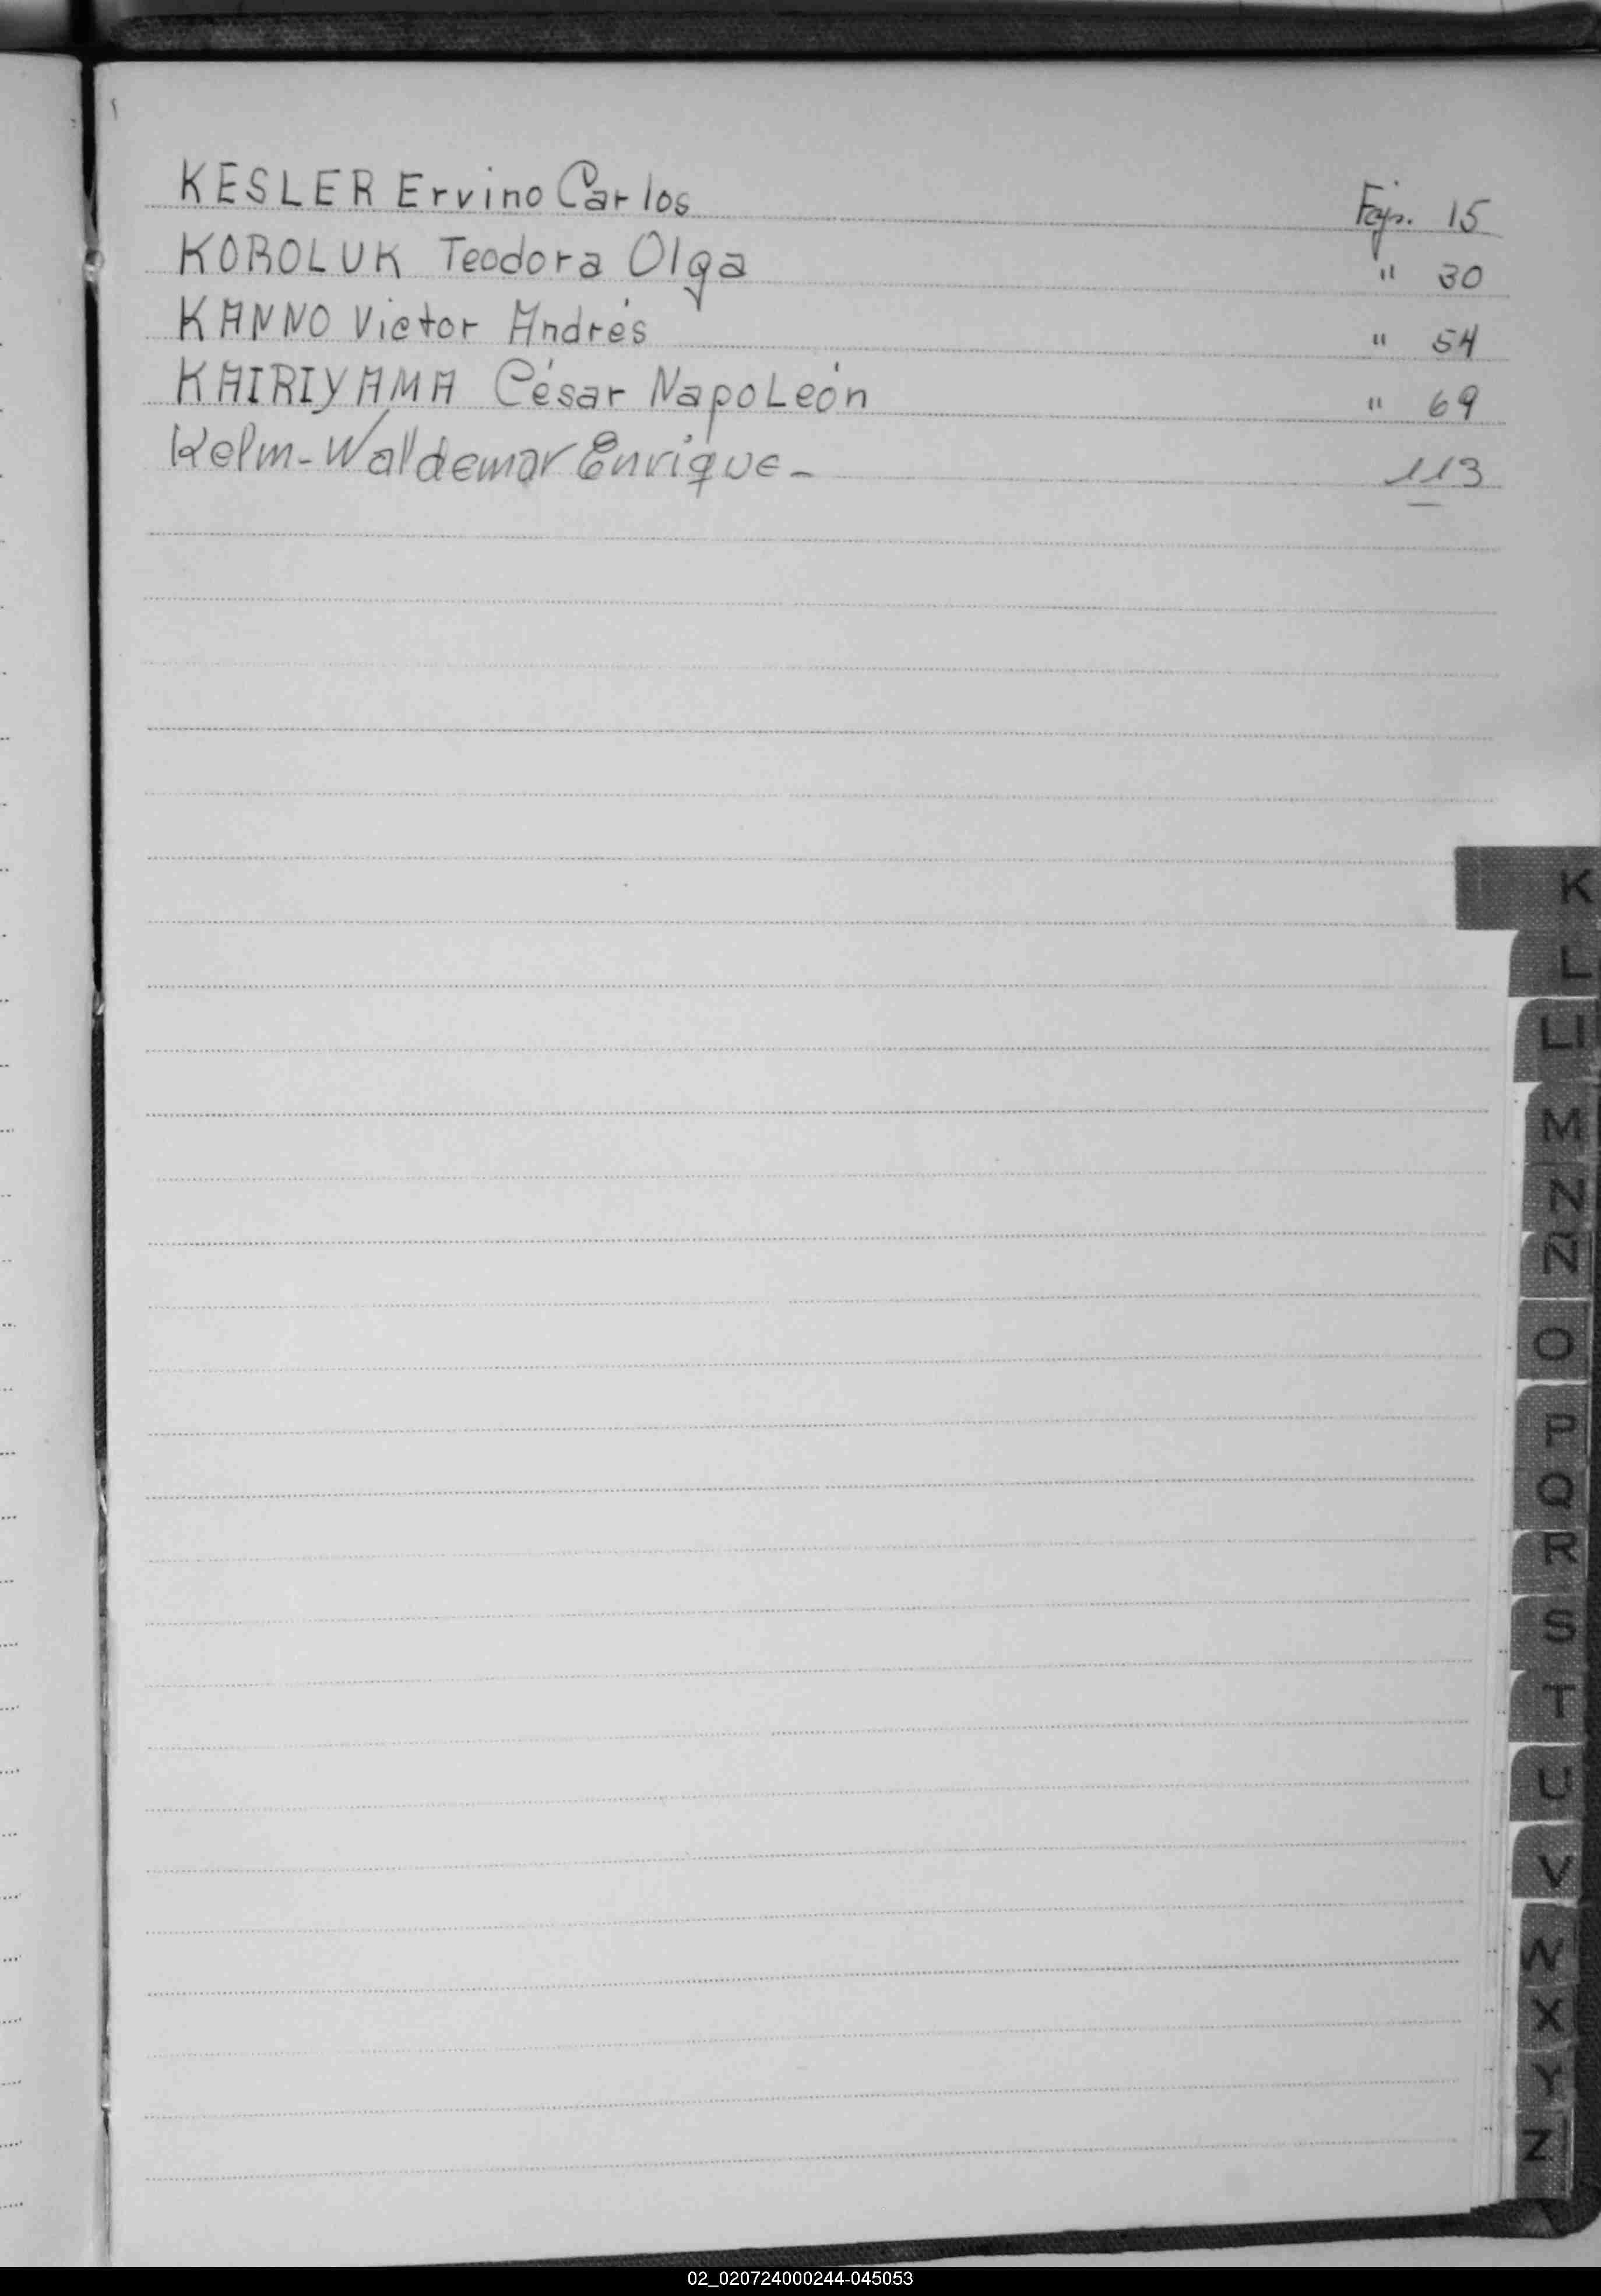 KESLER Ervino Carlos 15
KOROLUK Teodora Olga " 30
KANNO Victor Andrés " 54
KAIRIYAMA César Napoleón " 69
Kelm-Waldemar Enrique- 113
K
L
Ll
M
N
Ñ
O
P
Q
R
S
T
U
V
W
X
Y
Z
02_020724000244-045053